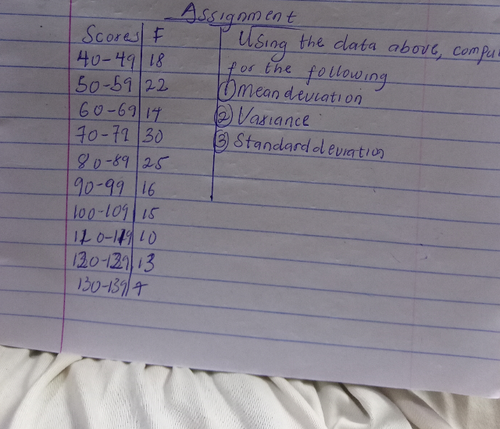 Assignment
Scores F
40-49 18
50-59 22
60-69 14
70-79 30
80-89 25
90-99 16
100-109 15
110-119 10
120-129 13
130-139
Using the data above, compu
for the following
① Mean deviation
② Variance
③ Standard deviation